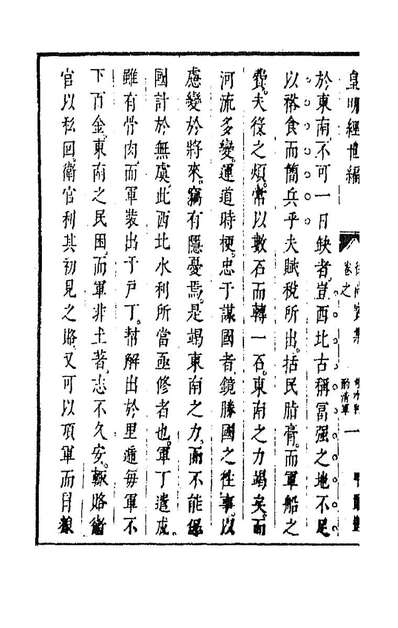 皇明經世編
卷之
一
於東南不可一日缺者豈西北古稱富强之地不足
以裕食而簡兵乎夫賦稅所出括民脂膏而軍船之
費夫役之煩常以數石而轉一石東南之力竭矣而
河流多變運道時梗忠于謀國者鏡勝國之往事以
慮變於將來竊有隱憂焉是竭東南之力而不能保
國計於無虞此西北水利所當亟修者也軍丁遣戍
雖有骨肉而軍裝出于戶丁幇解出於里遞每軍不
下百金東南之民困而軍非土著志不久安輙賂
官以私囬衛官利其初見之賂又可以頂軍而冃